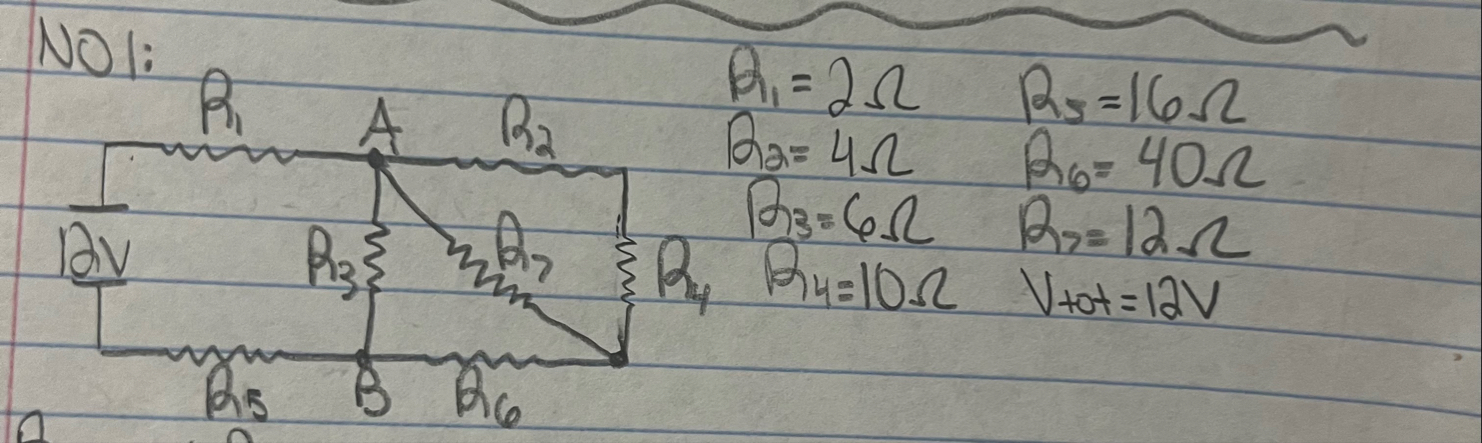 NO1:
R₁ A R₂
12V R₃ R₇ R₄
R₅ B R₆
R₁=2Ω R₅=16Ω
R₂=4Ω R₆=40Ω
R₃=6Ω R₇=12Ω
R₄=10Ω Vtot=12V